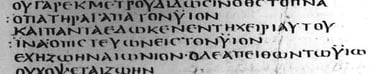 ΟΥΓΑΡΕΚΜΕΤΡΟΥΔΙΔΩϹΙΝΟΘϹΤΟΠΝΑ
:ΟΠΑΤΗΡΑΓΑΠΑΤΟΝΥΙΟΝ
ΚΑΙΠΑΝΤΑΕΔΩΚΕΝΕΝΤΗΧΕΙΡΙΑΥΤΟΥ
:ΙΝΑΟΠΙϹΤΕΥΩΝΕΙϹΤΟΝΥΙΟΝ
ΕΧΗΖΩΗΝΑΙΩΝΙΟΝ·ΟΔΕΑΠΕΙΘΩΝΤΩΥΙΩ
ΟΥΚΟΨΕΤΑΙΖΩΗΝ